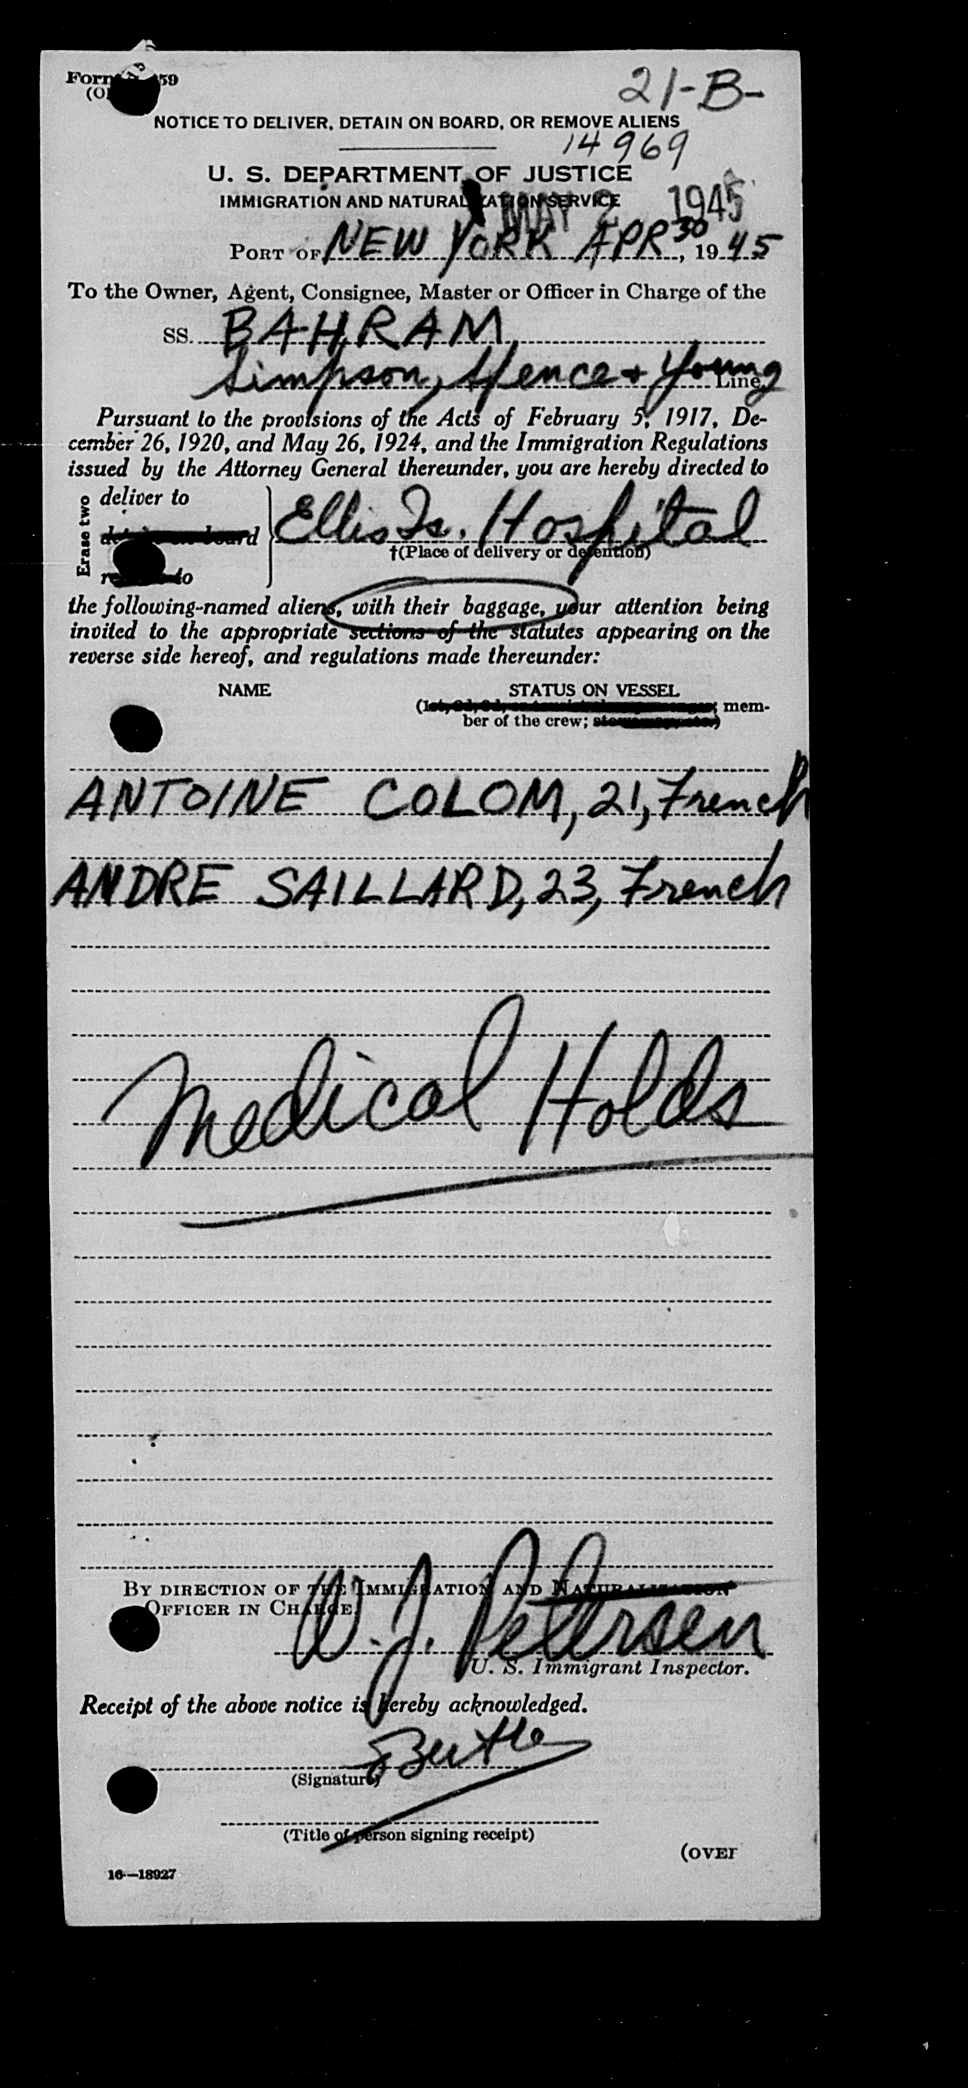 Form 59
21-B-
NOTICE TO DELIVER, DETAIN ON BOARD, OR REMOVE ALIENS
14969
U. S. DEPARTMENT OF JUSTICE
IMMIGRATION AND NATURALIZATION SERVICE
MAY 2 1945
PORT OF NEW YORK APR 30, 1945
To the Owner, Agent, Consignee, Master or Officer in Charge of the
SS. BAHRAM
Simpson, Spence & Young Line,
Pursuant to the provisions of the Acts of February 5, 1917, De-
cember 26, 1920, and May 26, 1924, and the Immigration Regulations
issued by the Attorney General thereunder, you are hereby directed to
Erase two
deliver to
detain on board
Ellis Is. Hospital
†(Place of delivery or detention)
remove to
the following-named aliens, with their baggage, your attention being
invited to the appropriate sections of the statutes appearing on the
reverse side hereof, and regulations made thereunder:
NAME STATUS ON VESSEL
mem-
ber of the crew;
ANTOINE COLOM, 21, French
ANDRE SAILLARD, 23, French
Medical Holds
BY DIRECTION OF THE IMMIGRATION AND NATURALIZATION
OFFICER IN CHARGE
W. J. Petersen
U. S. Immigrant Inspector.
Receipt of the above notice is hereby acknowledged.
(Signature)
(Title of person signing receipt)
(OVER
16—18927